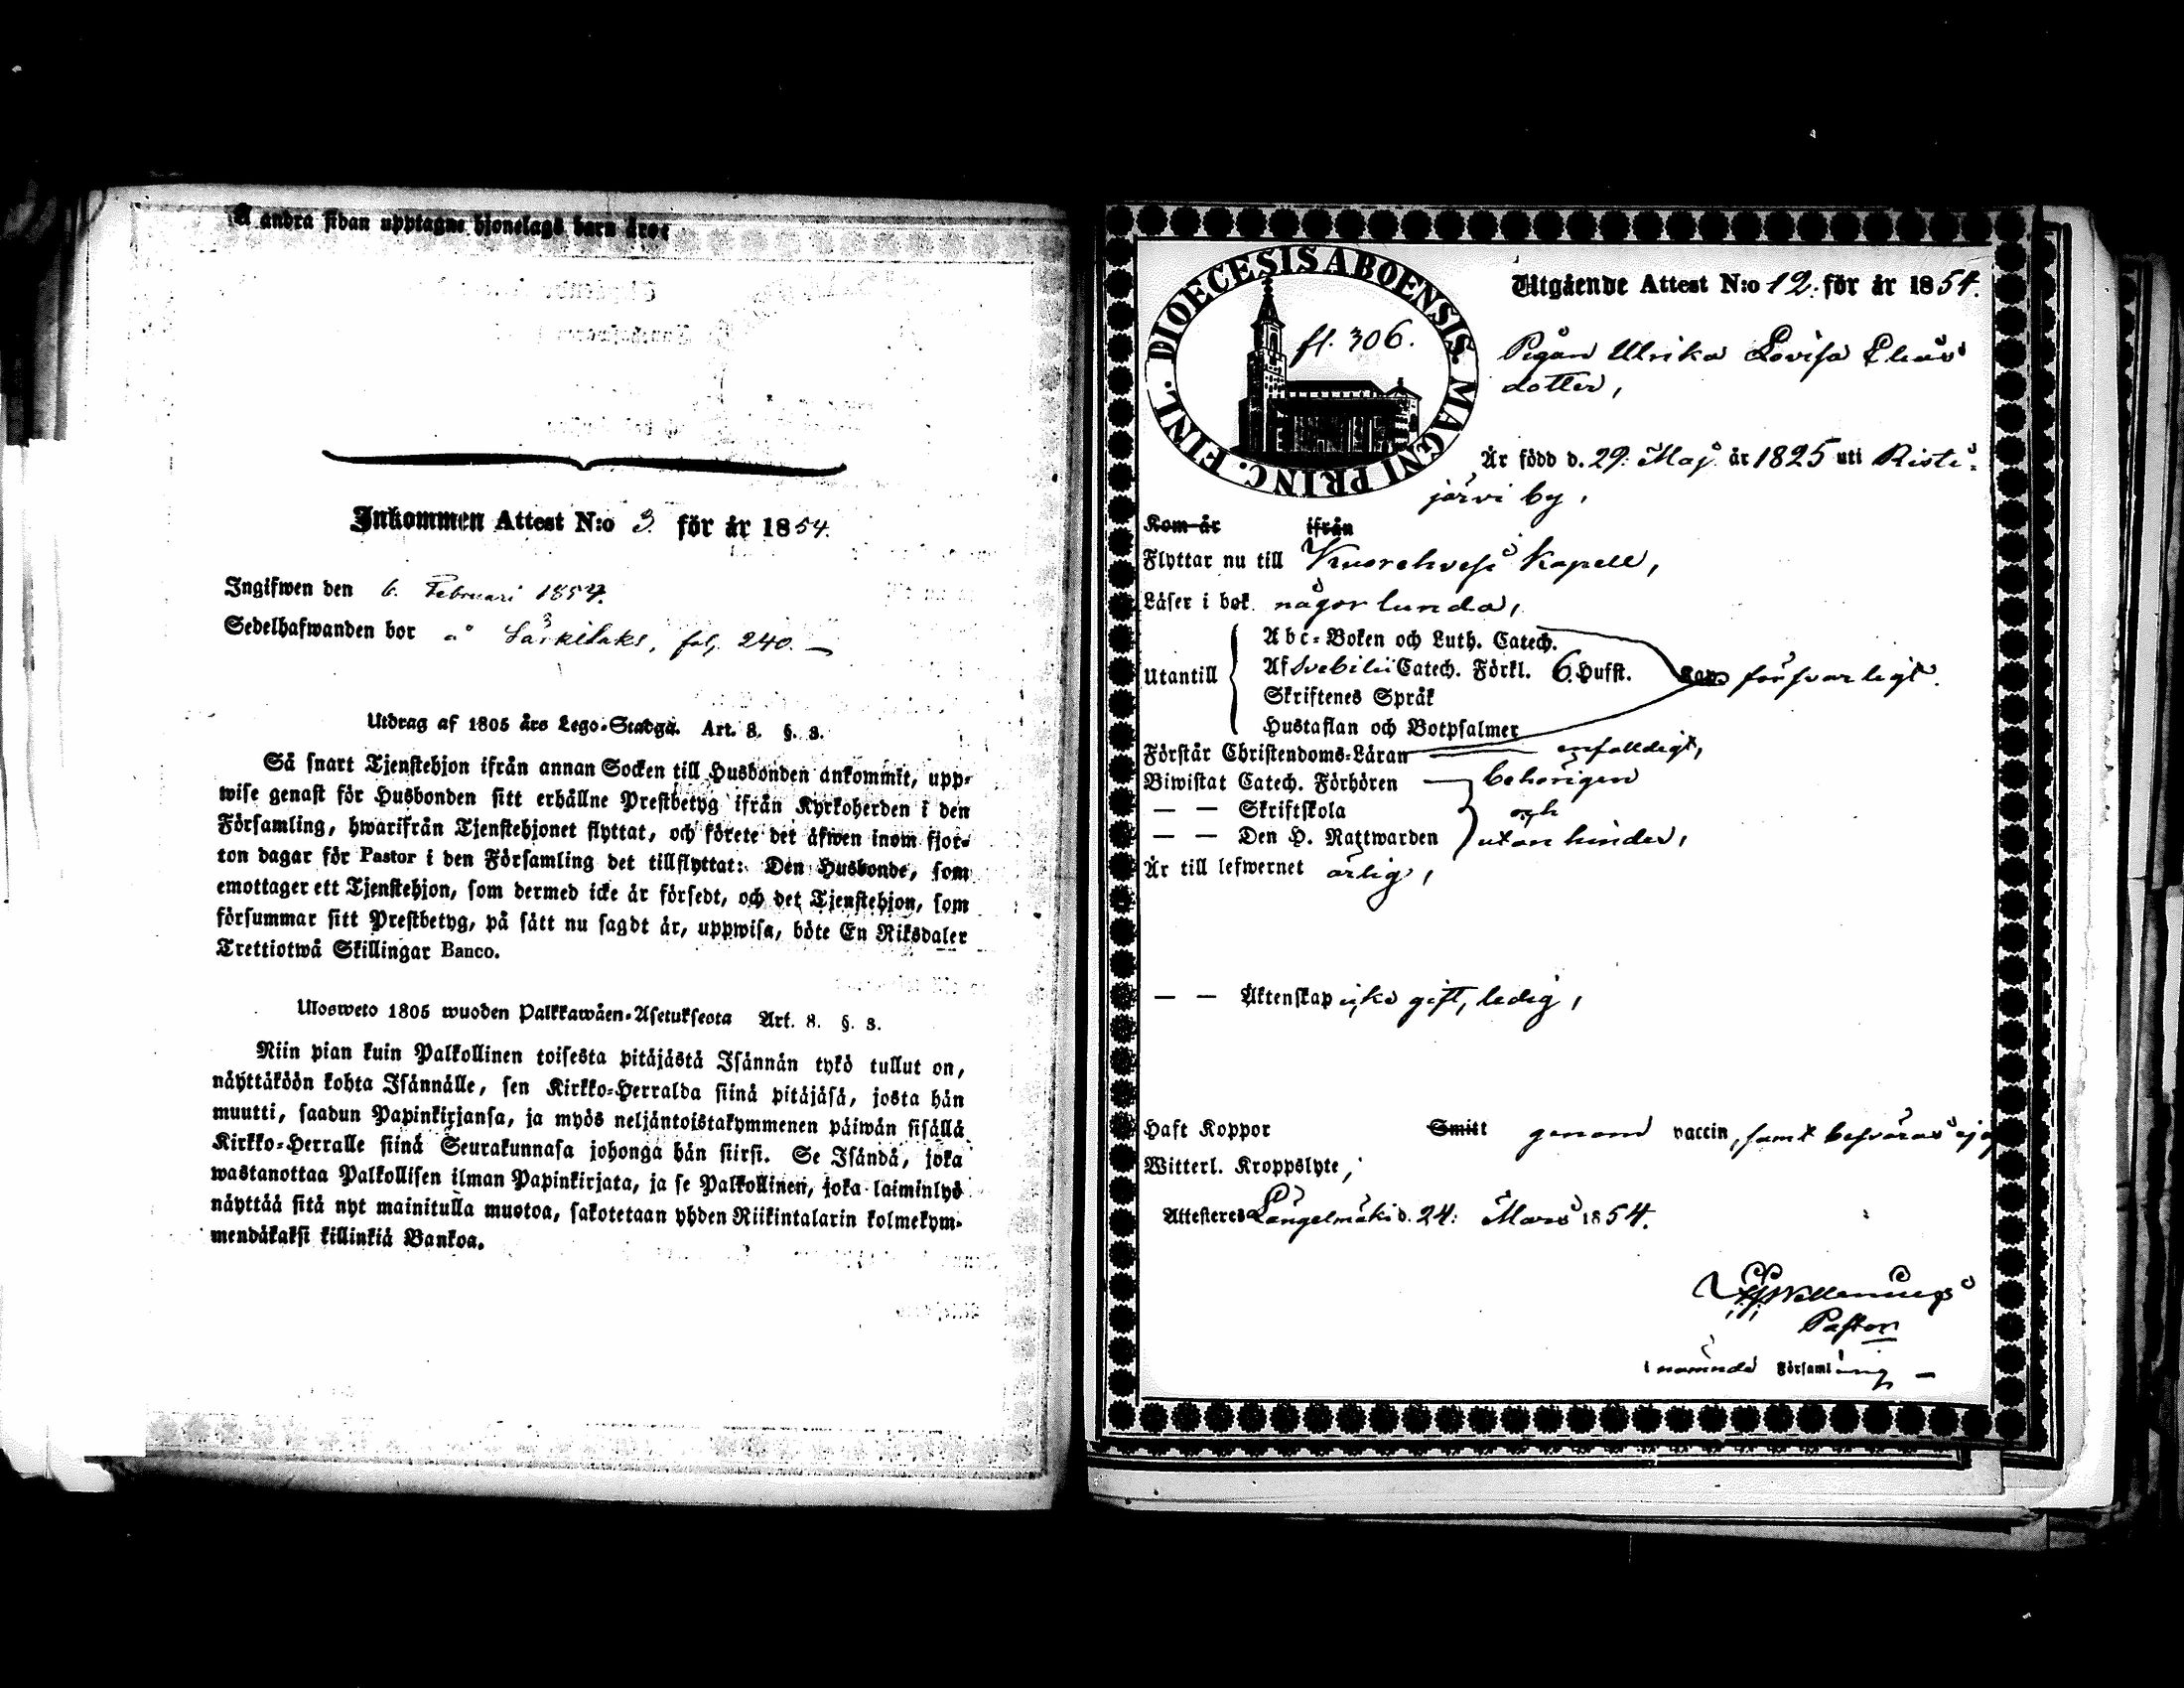 Å andra sidan upptagne hjonelags barn äro:
Inkommen Attest N:o 3. för år 1854.
Ingifwen den 6. Februari 1854.
Sedelhafwanden bor å Särkilaks, fol. 240. —
Utdrag af 1805 års Lego-Stadga. Art. 8. §. 8.
Så snart Tjenstehjon ifrån annan Socken till Husbonden ankommit, upp-
wise genast för Husbonden sitt erhållne Prestbetyg ifrån Kyrkoherden i den
Församling, hwarifrån Tjenstehjonet flyttat, och förete det äfwen inom fjor-
ton dagar för Pastor i den Församling det tillflyttat: Den Husbonde, som
emottager ett Tjenstehjon, som dermed icke är försedt, och det Tjenstehjon, som
försummar sitt Prestbetyg, på sätt nu sagdt är, uppwisa, böte En Riksdaler
Trettiotwå Skillingar Banco.
Uloswеto 1805 wuoden Palkkawäen-Asetuksesta Art. 8. §. 8.
Niin pian kuin Palkollinen toisesta pitäjästä Isännän tykö tullut on,
näyttäköön kohta Isännälle, sen Kirkko-Herralda siinä pitäjäsä, josta hän
muutti, saadun Papinkirjansa, ja myös neljäntoistakymmenen päiwän sisällä
Kirkko-Herralle siinä Seurakunnasa johonga hän siirsi. Se Isändä, joka
wastanottaa Palkollisen ilman Papinkirjata, ja se Palkollinen, joka laiminlyö
näyttää sitä nyt mainitulla muotoa, sakotetaan yhden Riikintalarin kolmekym-
mendäkaksi killinkiä Bankoa.
DIOECESIS ABOENSIS MAGNI PRINC. FINL.
fl. 306.
Utgående Attest N:o 12. för år 1854.
Pigan Ulrika Lovisa Elias
dotter,
Är född d. 29. Maj år 1825 uti Riste-
järvi by,
Kom år ifrån
Flyttar nu till Kuorehvesi Kapell,
Läser i bok någorlunda,
Utantill
Abc-Boken och Luth. Catech.
Af Svebilii Catech. Förkl. 6. Hufst. försvarligt.
Skriftenes Språk
Hustaflan och Botpsalmer
Förstår Christendoms-Läran — enfalldigt,
Biwistat Catech. Förhören — behörigen
— — Skriftskola och
— — Den H. Nattwarden utan hinder,
Är till lefwernet ärlig,
— — Äktenskap icke gift, ledig,
Haft Koppor Smitt genom vaccin, samt besväras ej af
Witterl. Kroppslyte,
Attesteres Längelmäki d. 24: Mars 1854.
Pastor
i nämnde Församling —